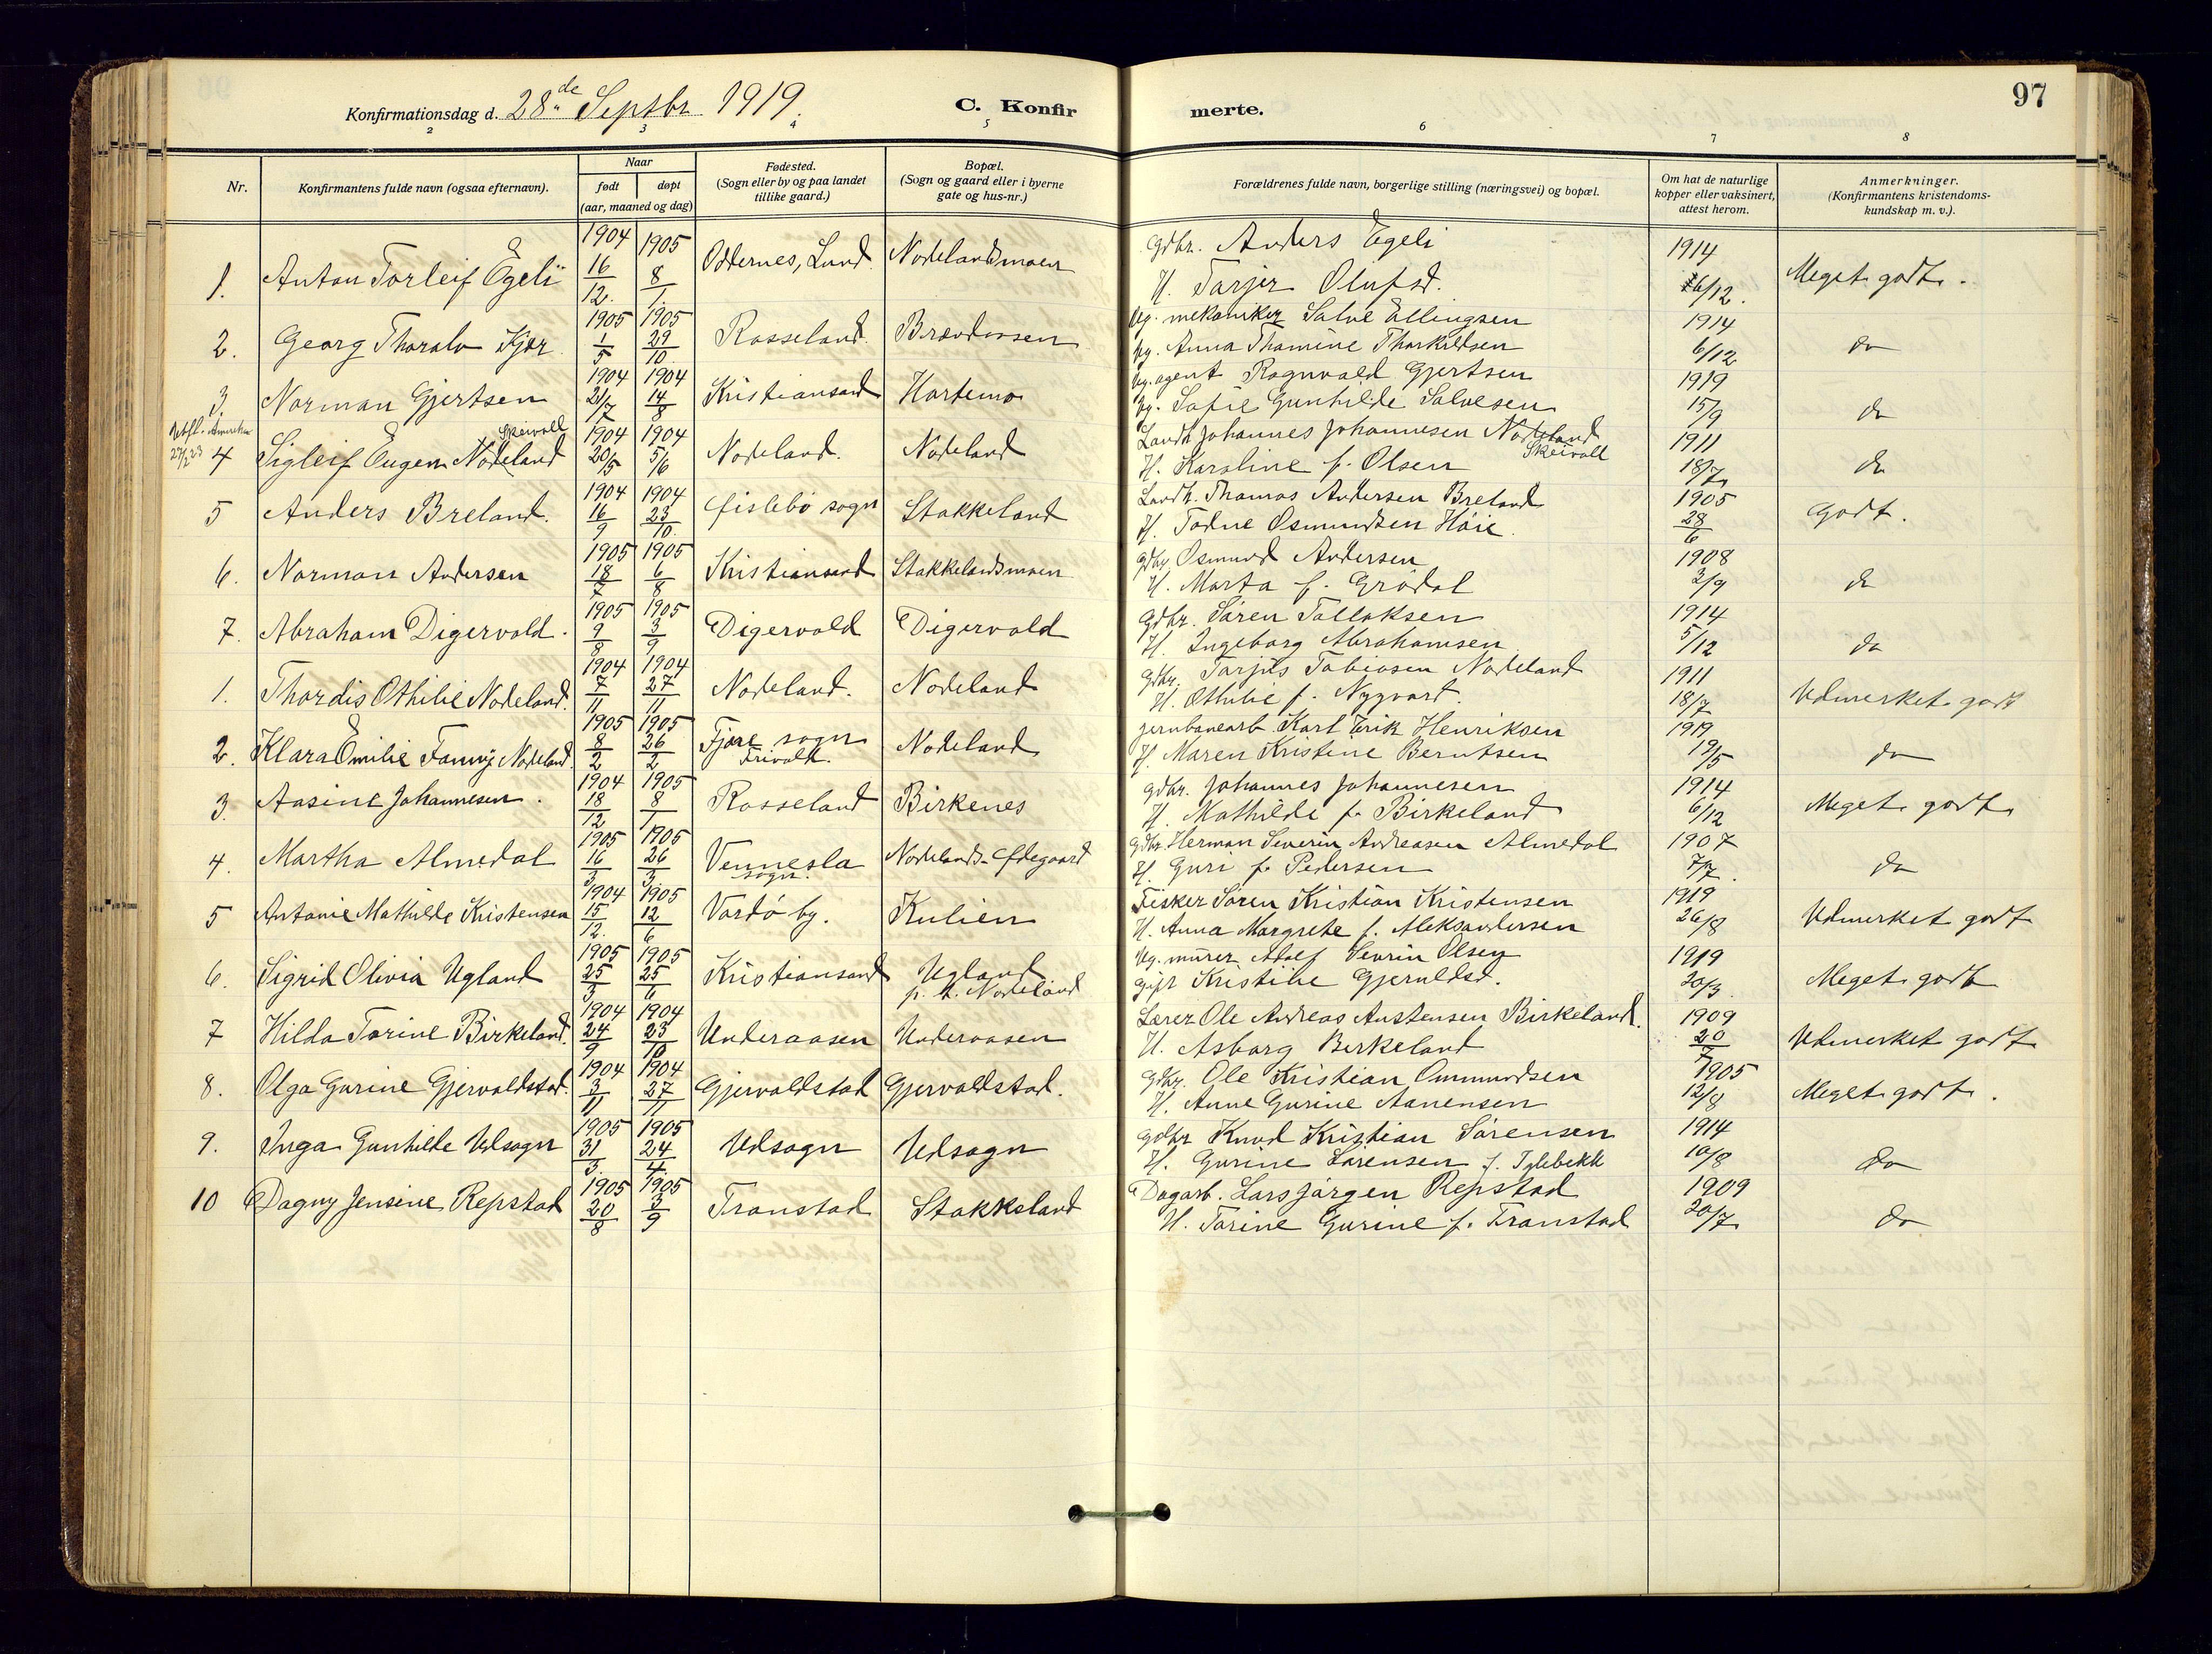 97
Konfirmationsdag d. 28de Septbr 1919. C. Konfirmerte.
2 3 4 5 6 7 8
Nr. Konfirmantens fulde navn (ogsaa efternavn). Naar født døpt (aar, maaned og dag) Fødested. (Sogn eller by og paa landet tillike gaard.) Bopæl. (Sogn og gaard eller i byerne gate og hus-nr.) Forældrenes fulde navn, borgerlige stilling (næringsvei) og bopæl. Om hat de naturlige kopper eller vaksinert, attest herom. Anmerkninger. (Konfirmantens kristendoms-kundskap m. v.).
1. Anton Torleif Egeli 1904 16/12. 1905 8/1. Oddernes, Lund Nodelandsmoen Gdbr. Anders Egeli 1914 6/12. Meget godt.
H. Tarjer Olufsd.
2. Georg Thoralv Kjær 1905 1/5 1905 29/10. Rosseland. Brovdersen Ug. mekaniker Salve Ellingsen 1914 6/12 do
pg. Anna Thomine Thorkildsen
3. Norman Gjertsen 1904 21/7 1904 14/8 Kristiansand Hortemo Ug. agent Ragnvald Gjertsen 1919 15/9 do
pg. Sofie Gunhilde Salvesen
Utfl. Amerika 27/2 23
4 Sigleif Eugen Nodeland Skeivoll 1904 20/5 1904 5/6 Nodeland. Nodeland Landh. Johannes Johannesen Nodeland Skeivoll 1911 18/7 do
H. Karoline f. Olsen
5 Anders Breland. 1904 16/9 1904 23/10. Øislebø sogn Stokkeland Landh. Thomas Andersen Breland 1905 28/6 Godt.
H. Todne Osmundsen Höie
6. Norman Andersen 1905 18/7 1905 6/8 Kristiansand Stokkelandsmoen Gdbr. Osmund Andersen 1908 2/9 do
H. Marta f. Grödal
7. Abraham Digervold. 1905 9/8 1905 3/9 Digervold Digervold Gdbr. Sören Tallaksen 1914 5/12 do
H. Ingeborg Abrahamsen
1. Thordis Othilie Nodeland. 1904 7/11 1904 27/11 Nodeland. Nodeland Gdbr. Tarjus Tobiasen Nodeland 1911 18/7 Udmerket godt
H. Othilie f. Nygvard.
2. Klara Emilie Fanny Nodeland. 1905 8/2 1905 26/2 Fjære sogn Frivold. Nodeland jernbanearb. Karl Erik Henriksen 1919 19/5 do
H. Maren Kristine Berntsen
3. Aasine Johannesen. 1904 18/12 1905 8/1 Rosseland Birkenes Gdbr. Johannes Johannesen 1914 6/12 Meget godt
H. Mathilde f. Birkeland
4. Martha Almedal 1905 16/3 1905 26/3. Vennesla sogn. Nodelands-Ødegaard Gdbr. Herman Severin Andreasen Almedal 1907 7/7. do
H. Guri f. Pedersen
5 Antonie Mathilde Kristensen 1904 15/12. 1905 12/6 Vardö by. Kulien Fisker Sören Kristian Kristensen 1919 26/8 Udmerket godt
H. Anna Margrete f. Aleksandersen
6. Sigrid Olivia Ugland 1905 25/3 1905 25/6 Kristiansand Ugland p. t. Nodeland Ug. murer Adolf Sevrin Olsen 1919 20/3 Meget godt
gift Kristine Gjeruldsd.
7 Hilda Torine Birkeland. 1904 24/9 1904 23/10 Underaasen Underaasen Lærer Ole Andreas Austensen Birkeland. 1909 20/7 Udmerket godt
H. Asborg Birkeland
8. Olga Gurine Gjervoldstad. 1904 3/11 1904 27/11 Gjervoldstad Gjervoldstad. Gdbr. Ole Kristian Ommundsen 1905 12/8 Meget godt.
H. Anne Gurine Aanensen
9. Inga Gunhilde Udsogn 1905 31/3. 1905 24/4. Udsogn Udsogn Gdbr Knud Kristian Sörensen 1914 10/8 do
H. Gurine Sörensen f. Iglebekk
10 Dagny Jensine Repstad 1905 20/8 1905 3/9 Tronstad Stokkeland Dagarb. Lars Jörgen Repstad 1909 20/7 do
H. Torine Gurine f. Tronstad